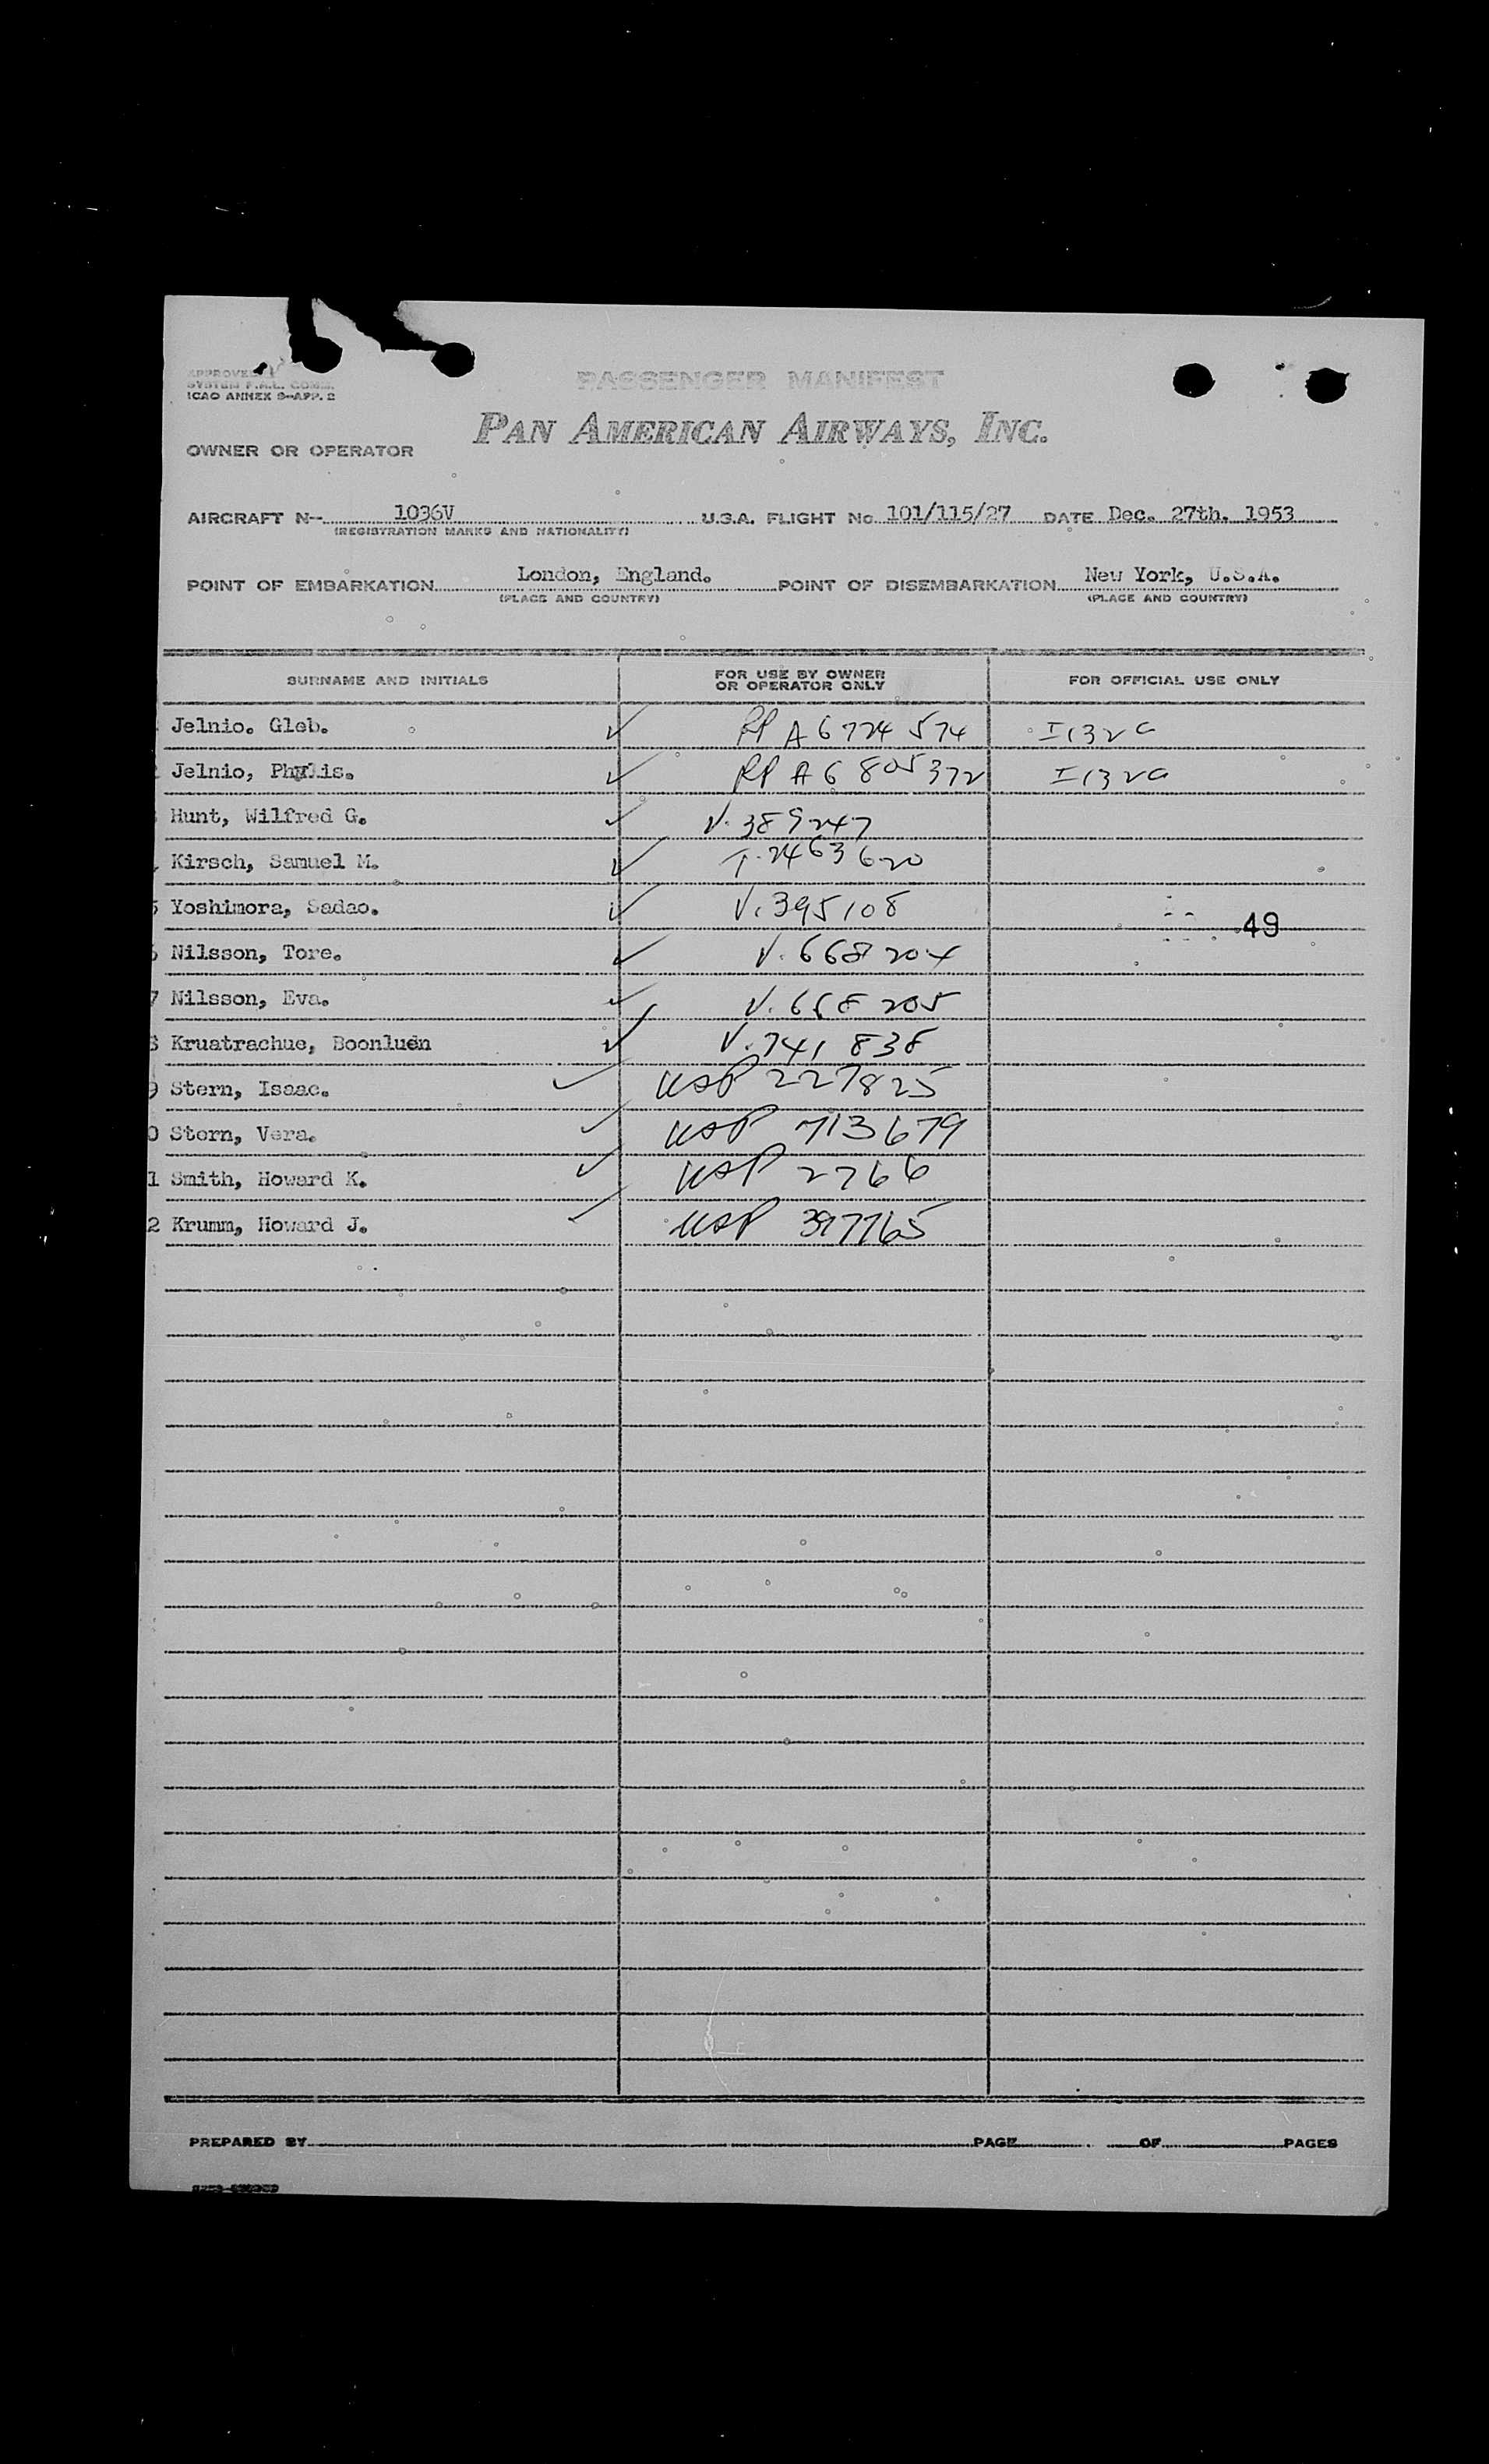 APPROVED
SYSTEM F.A.L. COMM.
ICAO ANNEX 9-APP. 2
PASSENGER MANIFEST
PAN AMERICAN AIRWAYS, INC.
OWNER OR OPERATOR
AIRCRAFT N- 1036V U.S.A. FLIGHT No 101/115/27 DATE Dec. 27th. 1953
(REGISTRATION MARKS AND NATIONALITY)
POINT OF EMBARKATION London, England. POINT OF DISEMBARKATION New York, U.S.A.
(PLACE AND COUNTRY) (PLACE AND COUNTRY)
SURNAME AND INITIALS FOR USE BY OWNER OR OPERATOR ONLY FOR OFFICIAL USE ONLY
Jelnio. Gleb. ✓ RP A6 724 574 I132a
Jelnio, Phyllis. ✓ RP A6 805 372 I132a
Hunt, Wilfred G. ✓ V. 389247
Kirsch, Samuel M. ✓ T. 2463620
5 Yoshimora, Sadao. ✓ V. 395108
49
6 Nilsson, Tore. ✓ V. 668204
7 Nilsson, Eva. ✓ V. 668205
8 Kruatrachue, Boonluen ✓ V. 741 838
9 Stern, Isaac. ✓ USP 227825
0 Stern, Vera. ✓ USP 713679
1 Smith, Howard K. ✓ USP 2766
2 Krumm, Howard J. ✓ USP 397765
PREPARED BY PAGE OF PAGES